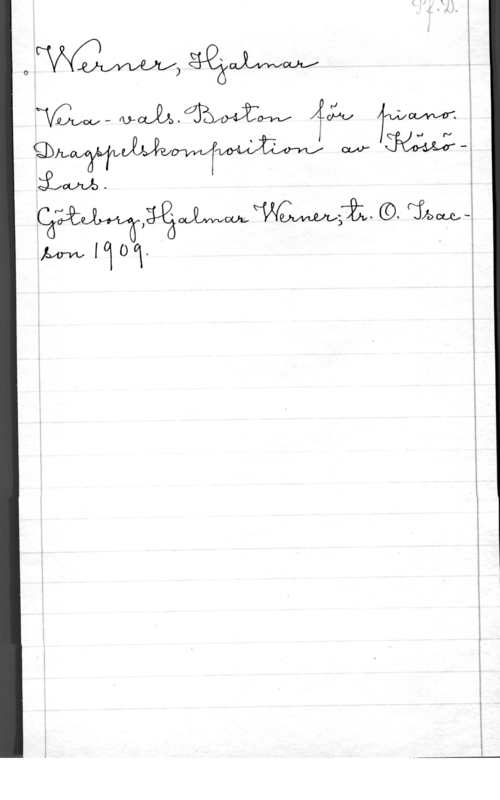 Pf.D.
Werner, Hjalmar
Vera-vals. Boston för piano.
Dragspelskomposition av Kössö-
Lars.
Göteborg, Hjalmar Werner; tr. O. Isac-
son 1909.